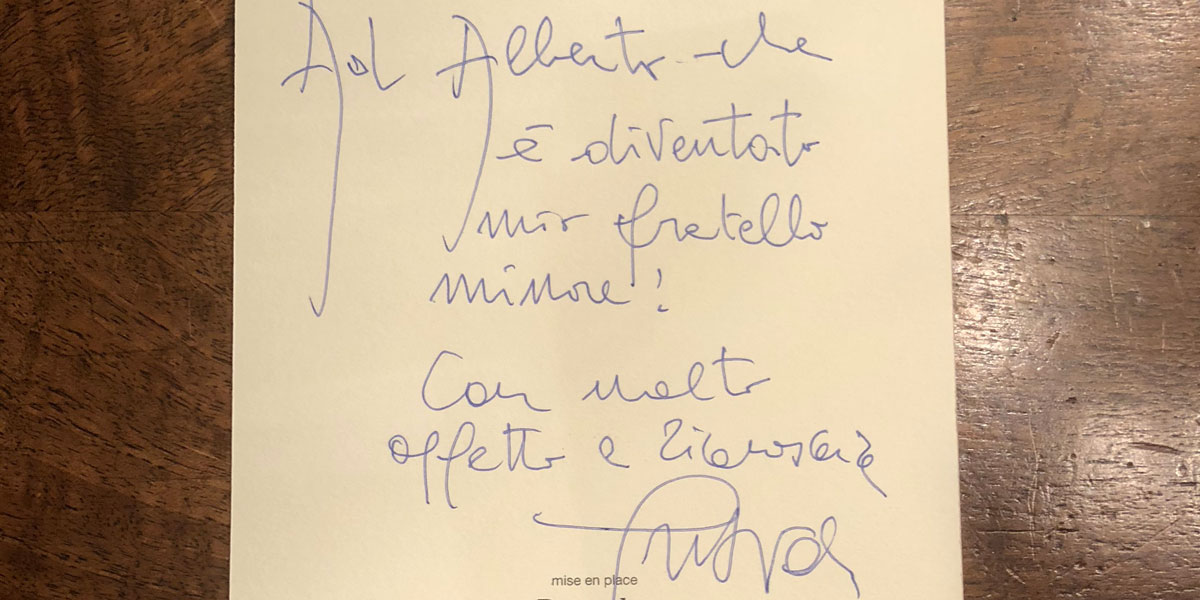 Ad Alberto che
è diventato
mio fratello
minore!
Con molto
affetto e
mise en place